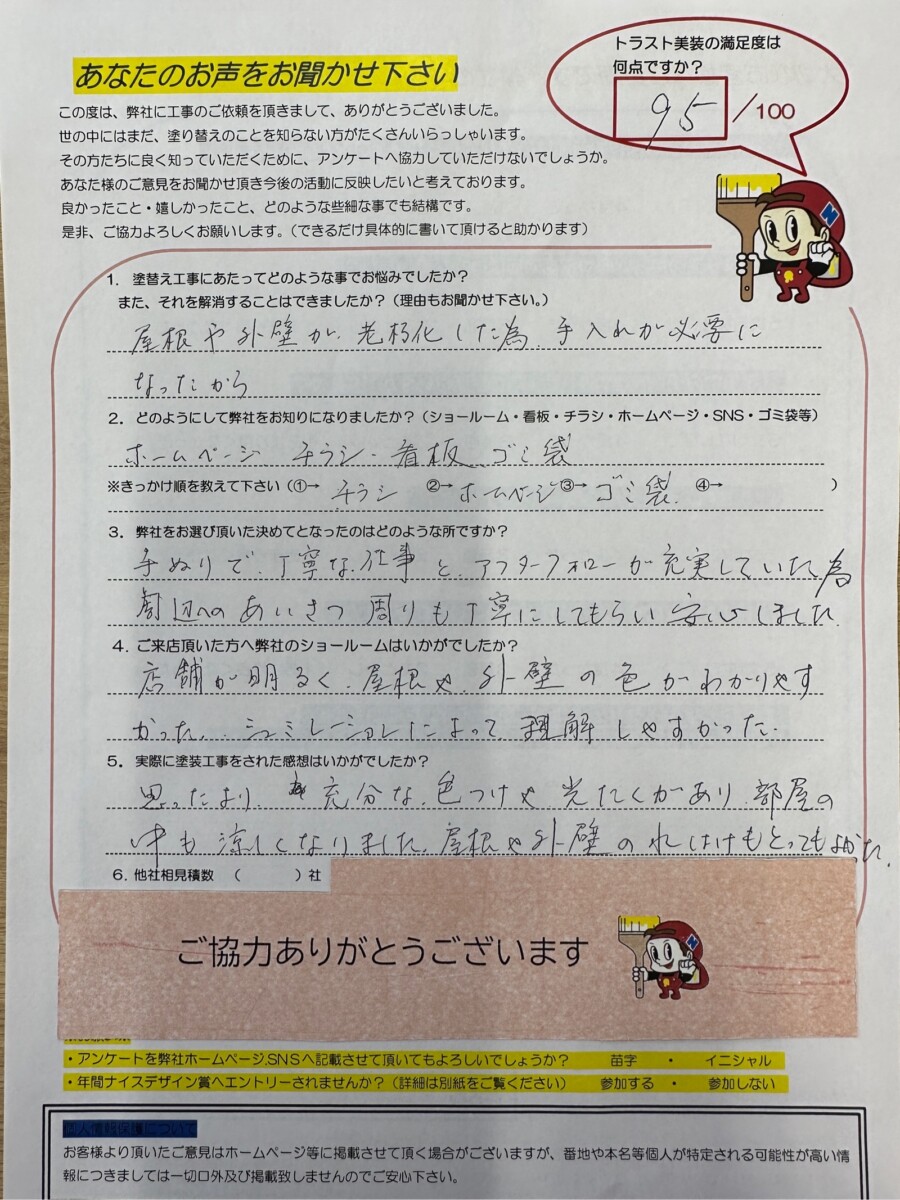 あなたのお声をお聞かせ下さい
トラスト美装の満足度は
何点ですか？
95 /100
この度は、弊社に工事のご依頼を頂きまして、ありがとうございました。
世の中にはまだ、塗り替えのことを知らない方がたくさんいらっしゃいます。
その方たちに良く知っていただくために、アンケートへ協力していただけないでしょうか。
あなた様のご意見をお聞かせ頂き今後の活動に反映したいと考えております。
良かったこと・嬉しかったこと、どのような些細な事でも結構です。
是非、ご協力よろしくお願いします。（できるだけ具体的に書いて頂けると助かります）
N
1．塗替え工事にあたってどのような事でお悩みでしたか？
また、それを解消することはできましたか？（理由もお聞かせ下さい。）
屋根や外壁が、老朽化した為、手入れが必要に
なったから
2．どのようにして弊社をお知りになりましたか？（ショールーム・看板・チラシ・ホームページ・SNS・ゴミ袋等）
ホームページ チラシ・看板 ゴミ袋
※きっかけ順を教えて下さい（①→ チラシ ②→ ホームページ ③→ ゴミ袋 ④→ ）
3．弊社をお選び頂いた決めてとなったのはどのような所ですか？
手ぬりで、丁寧な仕事と、アフターフォローが充実していた為
周辺へのあいさつ 周りも丁寧にしてもらい安心しました
4．ご来店頂いた方へ弊社のショールームはいかがでしたか？
店舗が明るく、屋根や、外壁の色がわかりやす
かった、シュミレーションによって理解しやすかった.
5．実際に塗装工事をされた感想はいかがでしたか？
思ったより、充分な、色つけや、光たくがあり、部屋の
中も涼しくなりました、屋根や外壁の水はけもとってもよかった.
6．他社相見積数 （ ）社
ご協力ありがとうございます
N
・アンケートを弊社ホームページ,SNSへ記載させて頂いてもよろしいでしょうか？ 苗字 ・ イニシャル
・年間ナイスデザイン賞へエントリーされませんか？（詳細は別紙をご覧ください） 参加する ・ 参加しない
個人情報保護について
お客様より頂いたご意見はホームページ等に掲載させて頂く場合がございますが、番地や本名等個人が特定される可能性が高い情
報につきましては一切口外及び掲載致しませんのでご安心下さい。